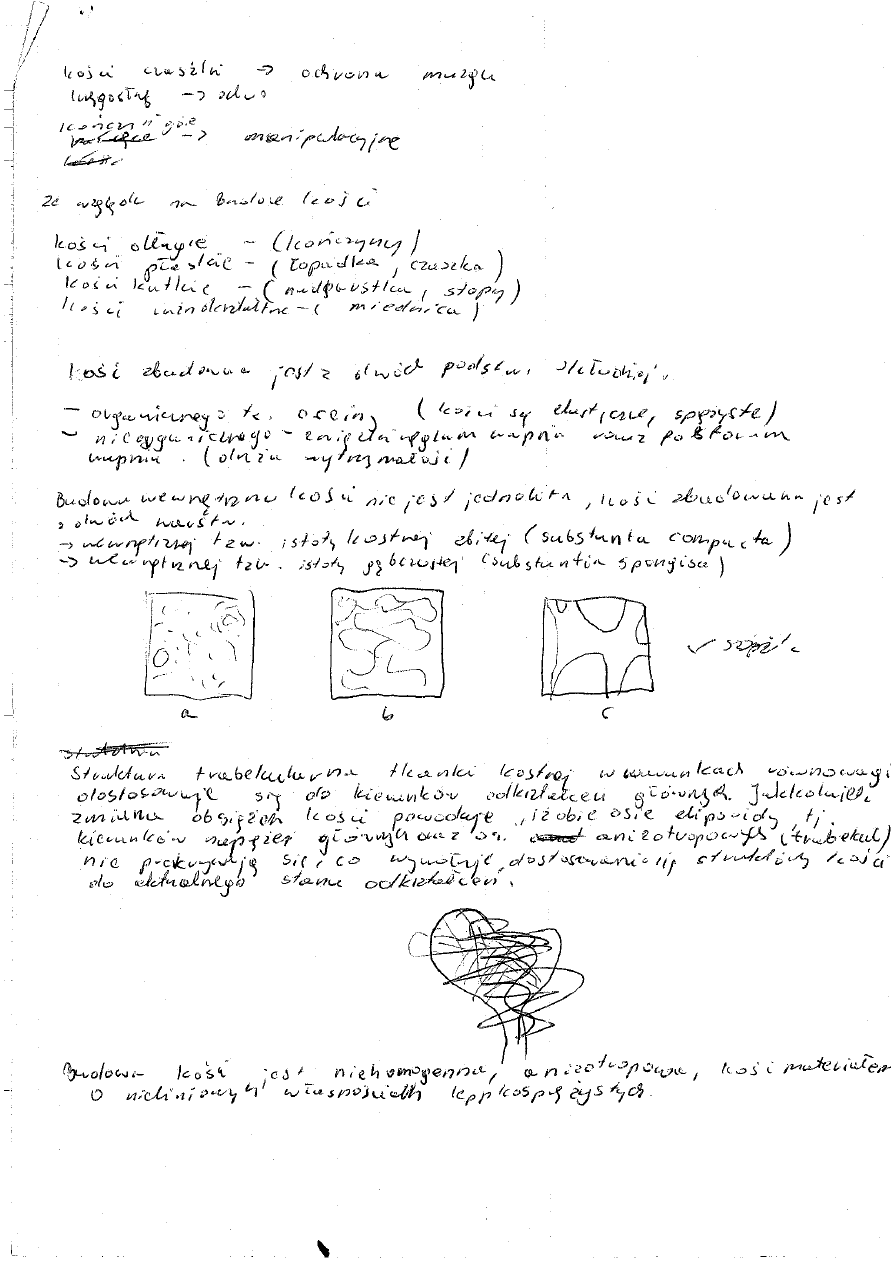 kości czaszki → ochrona mózgu
kręgosłup →
kończyn górne → manipulacyjne
Ze względu na budowę kości
kości długie - (kończyny)
kości płaskie - (łopadka, czaszka)
kości krótkie - (nadgarstka, stopy)
kości różnokształtne - (miednica)
kość zbudowana jest z dwóch podstaw. składników
- organicznego tz. osseiny (kości są elastyczne, sprężyste)
- nieorganicznego - związki węglanu wapnia oraz fosforanu
wapnia. (duża wytrzymałość)
Budowa wewnętrzna kości nie jest jednolita, kość zbudowana jest
z dwóch warstw.
→ wewnętrznej tzw. istoty kostnej zbitej (substantia compacta)
→ wewnętrznej tzw. istoty gąbczastej (substantia spongisa)
a b c
Struktura trabekularna tkanki kostnej w warunkach równowagi
dostosowuje się do kierunków odkształceń głównych. Jakakolwiek
zmiana obciążeń kości powoduje, iż obie osie elipsoidy, tj.
kierunków naprężeń głównych oraz os. anizotropowych (trabekul)
nie pokrywają się i co wywołuje dostosowanie się struktury kości
do aktualnego stanu odkształceń.
Budowa kości jest niehomogenna, anizotropowa, kość materiałem
o nieliniowych własnościach lepkosprężystych.